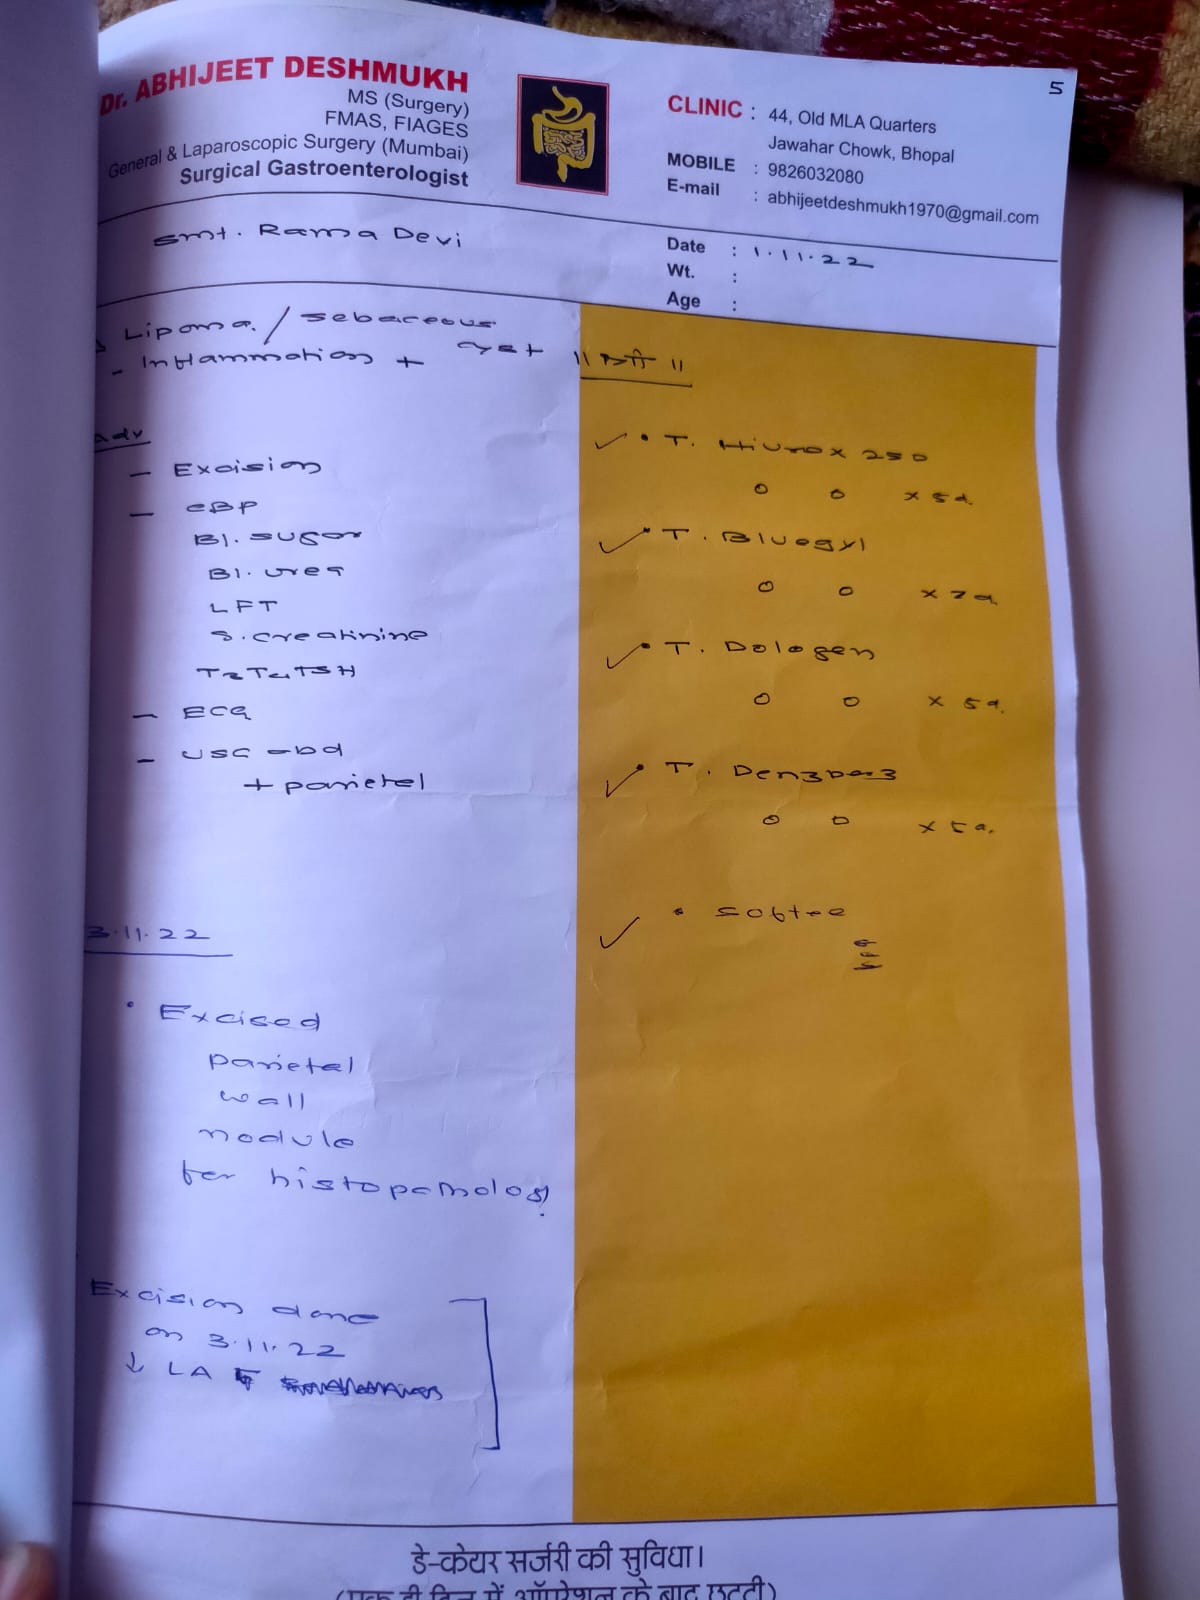 5
Dr. ABHIJEET DESHMUKH
MS (Surgery)
FMAS, FIAGES
General & Laparoscopic Surgery (Mumbai)
Surgical Gastroenterologist
CLINIC : 44, Old MLA Quarters
Jawahar Chowk, Bhopal
MOBILE : 9826032080
E-mail : abhijeetdeshmukh1970@gmail.com
Smt. Rama Devi
Date : 1.11.22
Wt. :
Age :
Lipoma / sebaceous
cyst
- Inflammation +
Adv
- Excision
- CBP
Bl. sugar
Bl. urea
LFT
S. creatinine
T3 T4 TSH
- ECG
- USG abd
+ parietal
3.11.22
• Excised
parietal
wall
nodule
for histopathology
Excision done
on 3.11.22
↓ LA
|| श्री ||
• T. 250
o o x 5d.
• T.
o o
• T. Dologen
o o x 5d.
• T.
o o x 5d.
•
डे-केयर सर्जरी की सुविधा।
(एक ही दिन में ऑपरेशन के बाद छुट्टी)